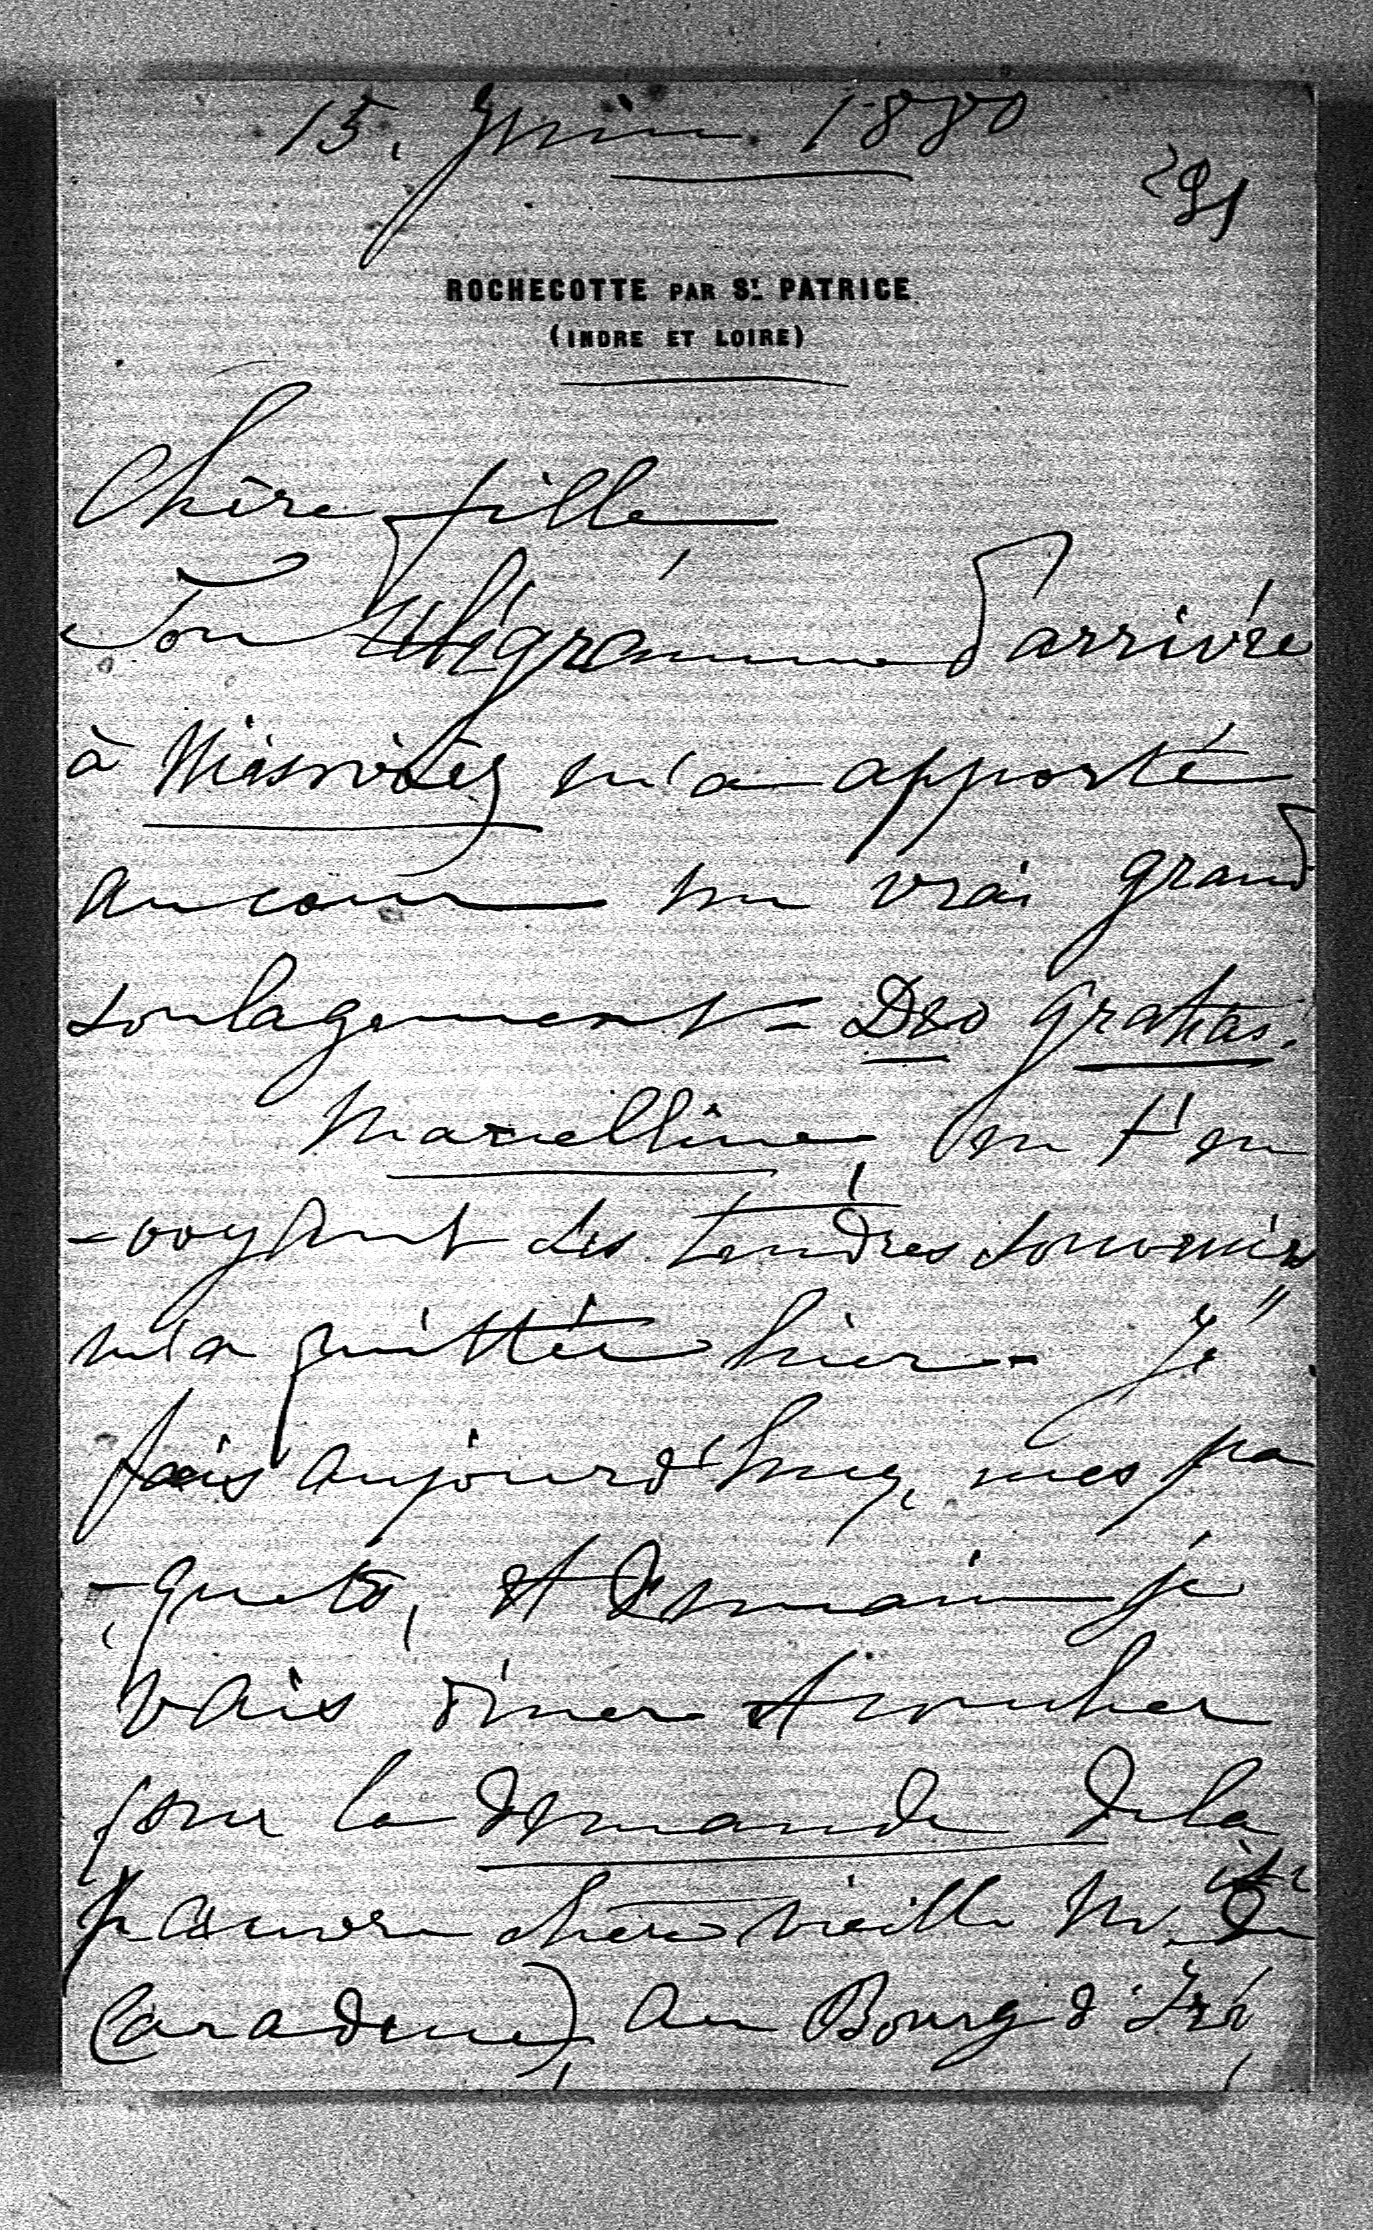 15. Juin 1880
291
ROCHECOTTE PAR St PATRICE
(INDRE ET LOIRE)
Chère fille
Ton télégramme d'arrivée
à Niéswiéz m'a apporté
au cœur un vrai grand
soulagement - Deo gratias.
Marcelline, en t'en
-voyant des tendres souvenirs
m'a quittée hier - Je
fais aujourd'huy, mes pa
-quets, et demain je
vais diner et coucher
(sur la demande de la
pauvre chère vieille Mise de
Caradeuc) au Bourg d'Iré,